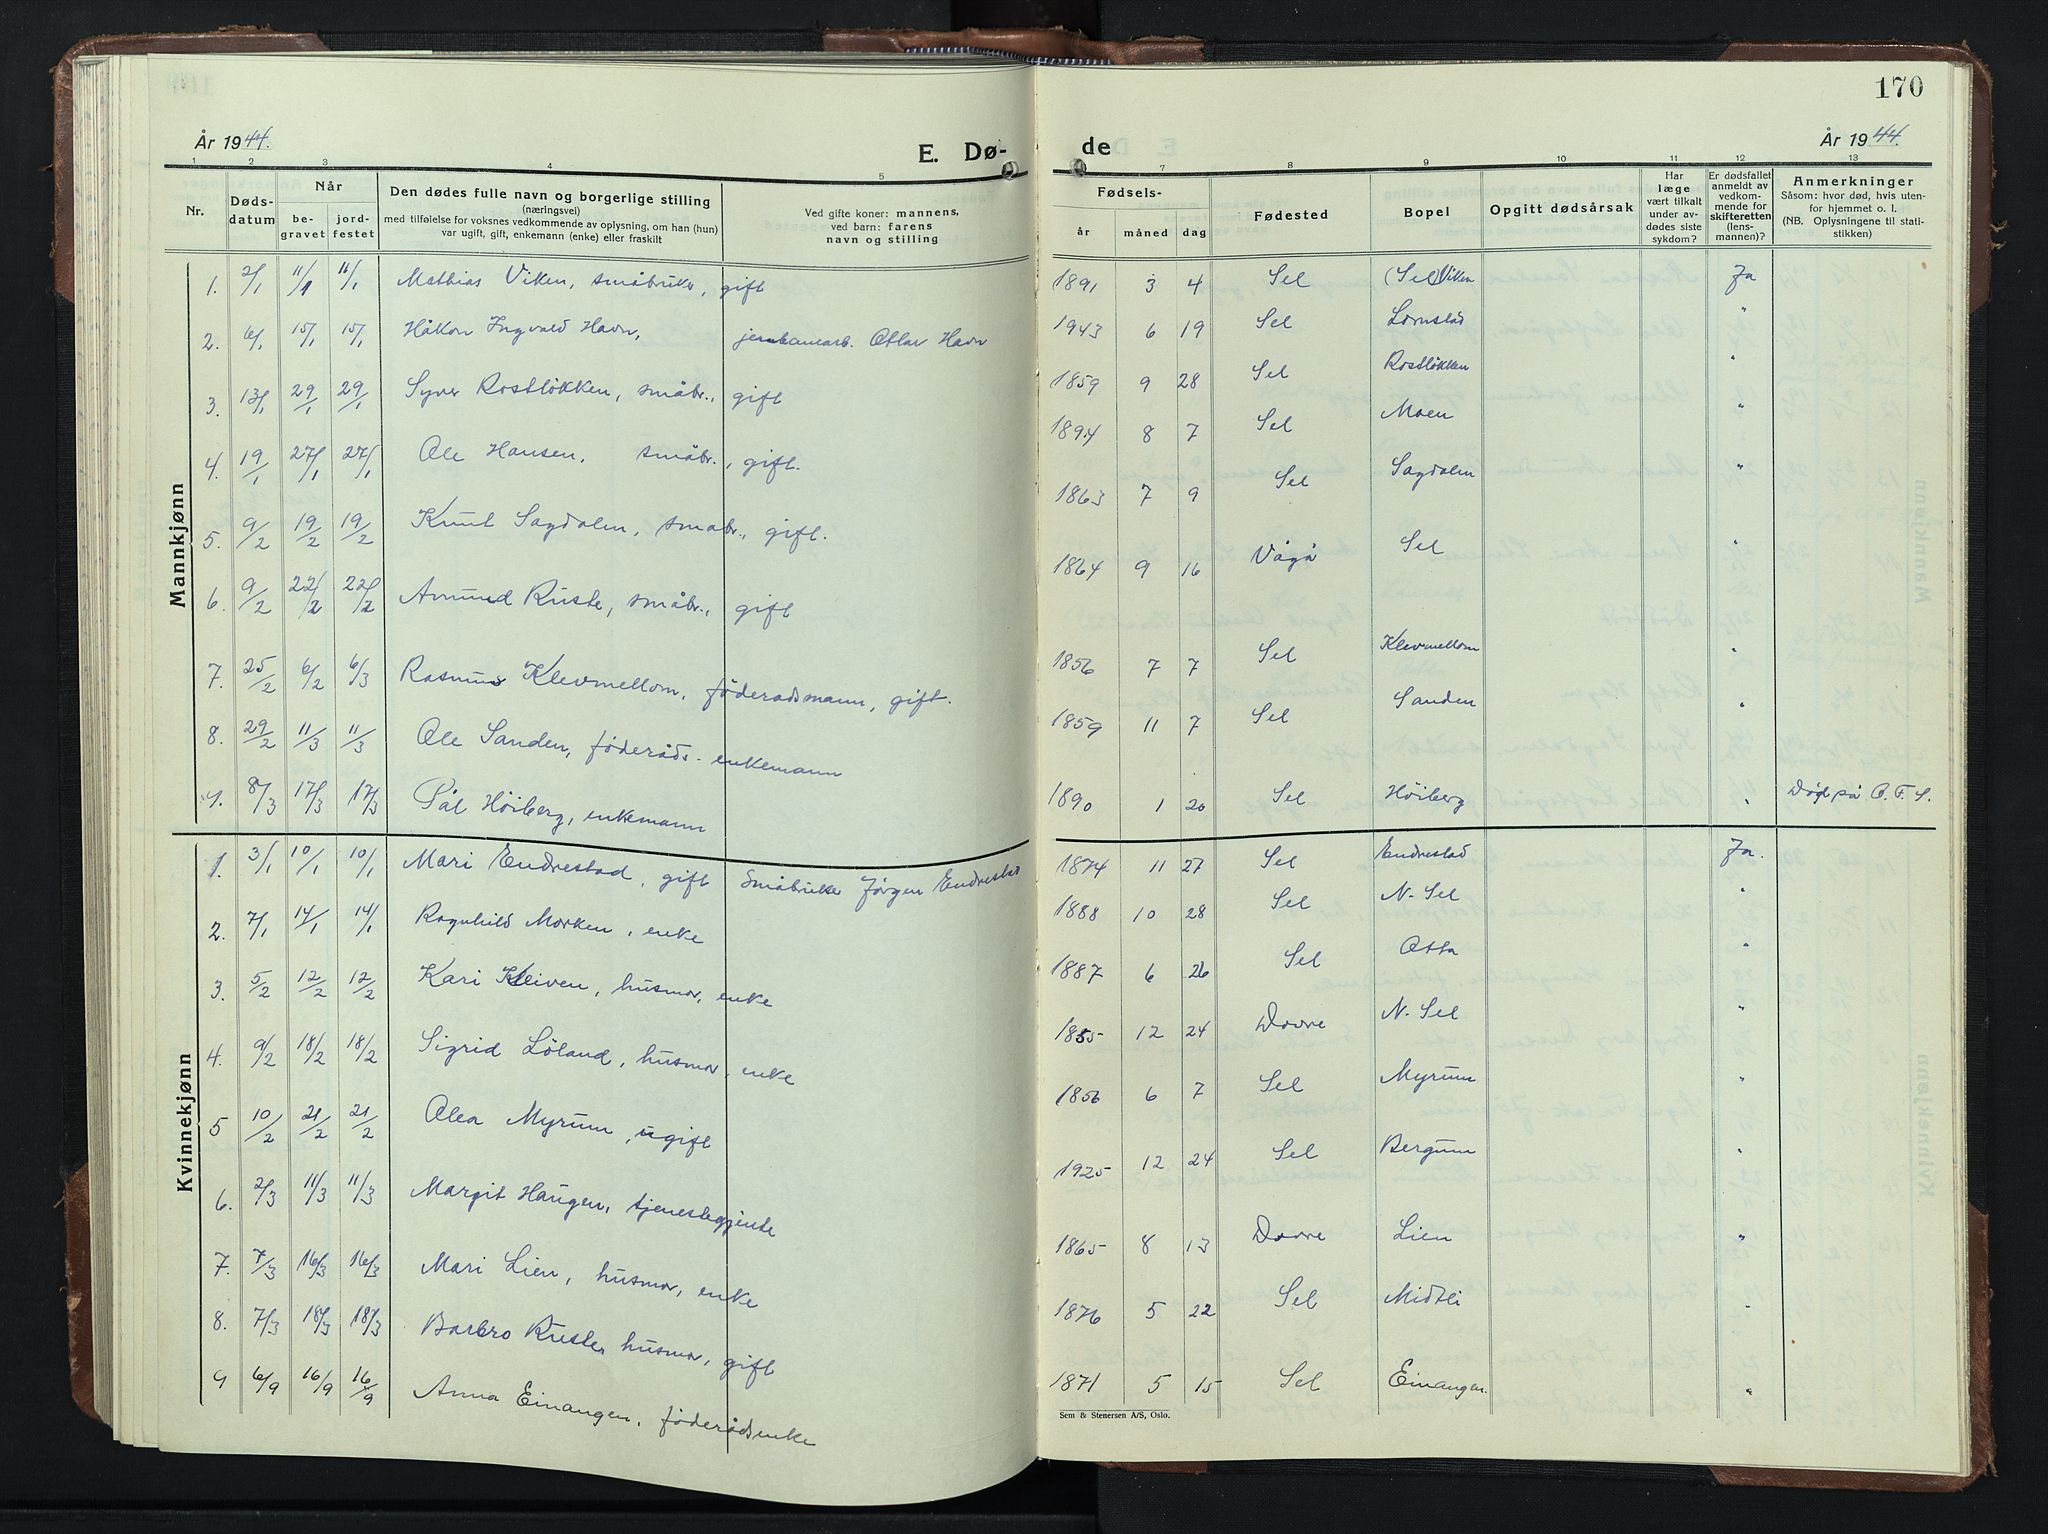 170
År 1944.
E. Dø-
de
År 1944.
1 2 3 4 5 7 8 9 10 11 12 13
Nr.
Døds-
datum
Når
be-
gravet
jord-
festet
Den dødes fulle navn og borgerlige stilling
(næringsvei)
med tilføielse for voksnes vedkommende av oplysning, om han (hun)
var ugift, gift, enkemann (enke) eller fraskilt
Ved gifte koner: mannens,
ved barn: farens
navn og stilling
Fødsels-
år måned dag
Fødested
Bopel
Opgitt dødsårsak
Har
læge
vært tilkalt
under av-
dødes siste
sykdom?
Er dødsfallet
anmeldt av
vedkom-
mende for
skifteretten
(lens-
mannen)?
Anmerkninger
Såsom: hvor død, hvis uten-
for hjemmet o. l.
(NB. Oplysningene til stati-
stikken)
Mannkjønn
1. 2/1 11/1 11/1 Mathias Viken, småbruker, gift 1891 3 4 Sel (Sel) Viken Ja
2. 6/1 15/1 15/1 Håkon Ingvald Havn, jernbanearb. Ottar Havn 1943 6 19 Sel Lornstad "
3. 13/1 29/1 29/1 Syver Rostløkken, småbr., gift 1859 9 28 Sel Rostløkken "
4. 19/1 27/1 27/1 Ole Hansen, småbr., gift. 1894 8 7 Sel Moen "
5. 9/2 19/2 19/2 Knut Sagdalen, småbr., gift. 1863 7 9 Sel Sagdalen "
6. 9/2 22/2 22/2 Amund Ruste, småbr., gift 1864 9 16 Vågå Sel "
7. 25/2 6/2 6/3 Rasmus Klevmellom, föderadsmann, gift. 1856 7 7 Sel Klevmellom "
8. 29/2 11/3 11/3 Ole Sanden, föderåds- enkemann 1859 11 7 Sel Sanden "
9. 8/3 17/3 17/3 Pål Höiberg, enkemann 1890 1 20 Sel Höiberg " Död på O. F. S.
Kvinnekjønn
1. 3/1 10/1 10/1 Mari Endrestad, gift Småbruker Jørgen Endrestad 1874 11 27 Sel Endrestad Ja.
2. 7/1 14/1 14/1 Ragnhild Morken, enke 1888 10 28 Sel N. Sel "
3. 5/2 12/2 12/2 Kari Kleiven, husmor, enke 1887 6 26 Sel Otta "
4. 9/2 18/2 18/2 Sigrid Löland, husmor, enke 1855 12 24 Dovre N. Sel "
5 10/2 21/2 21/2 Olea Myrum, ugift 1856 6 7 Sel Myrum "
6. 2/3 11/3 11/3 Margit Haugen, tjenestegjente 1925 12 24 Sel Bergum "
7. 7/3 16/3 16/3 Mari Lien, husmor, enke 1865 8 13 Dovre Lien "
8. 7/3 18/3 18/3 Barbro Ruste, husmor, gift 1876 5 22 Sel Midtli "
9 6/9 16/9 16/9 Anna Einangen, föderådsenke 1871 5 15 Sel Einangen. "
Sem & Stenersen A/S, Oslo.